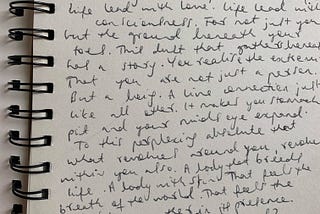 life lead with love. Life lead with
consciousness. For not just you
but the ground beneath your
toes. This dust that gathers beneath
has a story. You realise the extreme
That you are not just a person.
But a being. A live connection just
like all other. It makes your stomach
pit and your minds eye expand.
To this perplexing absolute that
what revolves around you, revolves
within you also. A body that breeds
life. A body with stars. That feels the
breath of the world. That feels the
presence.